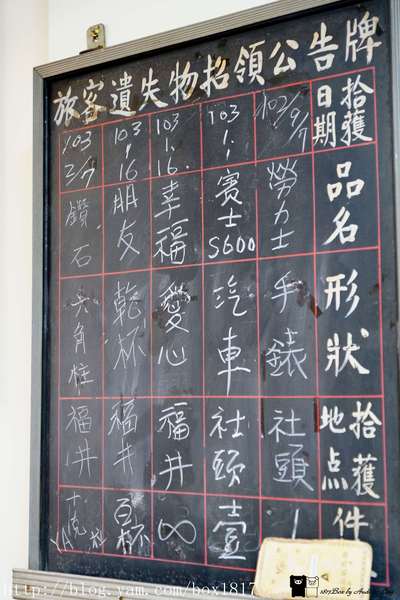 旅客遺失物招領公告牌
拾獲日期
品名
形狀
拾獲地点
件
102/9/7
勞力士
手錶
社頭
1
103.1.1
賓士S600
汽車
社頭
壹
103.1.16
幸福
愛心
福井
∞
103.1.16
朋友
乾杯
福井
百杯
103
2/7
鑽石
六角柱
福井
十克拉
YA
http://blog.yam.com/box1817
1817.Box by